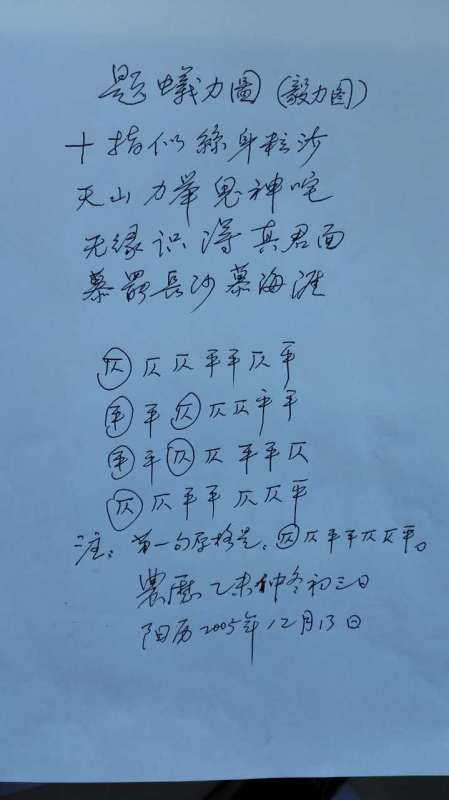 题蟻力圖（毅力图）
十指似絲身粒沙
天山力举鬼神咤
无缘识得真君面
慕罷長沙慕海涯
仄仄仄平平仄平
平平仄仄仄平平
平平仄仄平平仄
仄仄平平仄仄平
注：第一句原格是：仄仄平平仄仄平。
農歷乙未仲冬初三日
阳历2005年12月13日